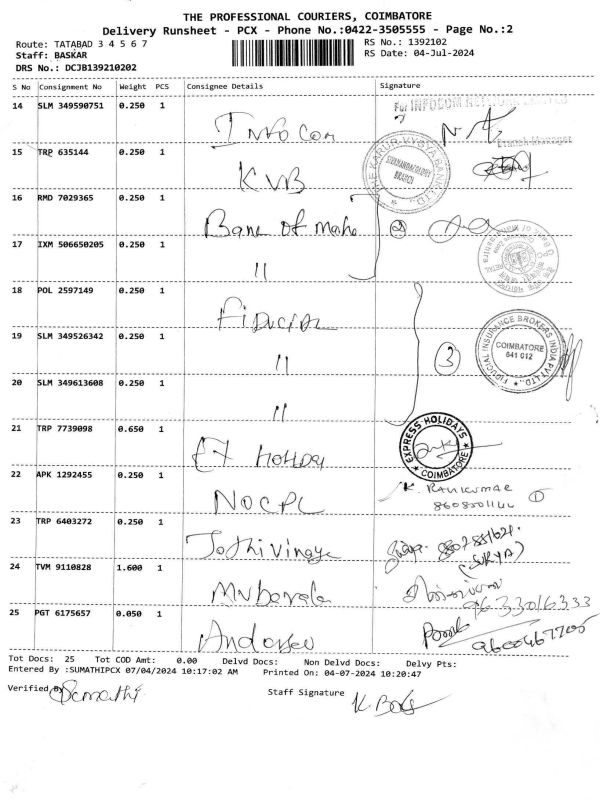 THE PROFESSIONAL COURIERS, COIMBATORE
Delivery Runsheet - PCX - Phone No.:0422-3505555 - Page No.:2
Route: TATABAD 3 4 5 6 7
RS No.: 1392102
Staff: BASKAR
RS Date: 04-Jul-2024
DRS No.: DCJB139210202
S No Consignment No Weight PCS Consignee Details Signature
14 SLM 349590751 0.250 1 Infocom
For INFOCOM NETWORK LIMITED
Branch Manager
15 TRP 635144 0.250 1 KVB
THE KARUR VYSYA BANK LTD.,
SIVANANDACOLONY
BRANCH
16 RMD 7029365 0.250 1 Bank of Maha
②
17 IXM 506650205 0.250 1 "
18 POL 2597149 0.250 1 Fiducial
19 SLM 349526342 0.250 1 "
③
FIDUCIAL INSURANCE BROKERS INDIA PVT.LTD.,
COIMBATORE
641 012
20 SLM 349613608 0.250 1 "
21 TRP 7739098 0.650 1 EX Holiday
EXPRESS HOLIDAYS
COIMBATORE
22 APK 1292455 0.250 1 NOCPL
K. RAVIKUMAR ①
8608501144
23 TRP 6403272 0.250 1 Jothivinaya
(SURYA)
24 TVM 9110828 1.600 1
9633016333
25 PGT 6175657 0.050 1
Tot Docs: 25 Tot COD Amt: 0.00 Delvd Docs: Non Delvd Docs: Delvy Pts:
Entered By :SUMATHIPCX 07/04/2024 10:17:02 AM Printed On: 04-07-2024 10:20:47
Verified By Sumathi
Staff Signature